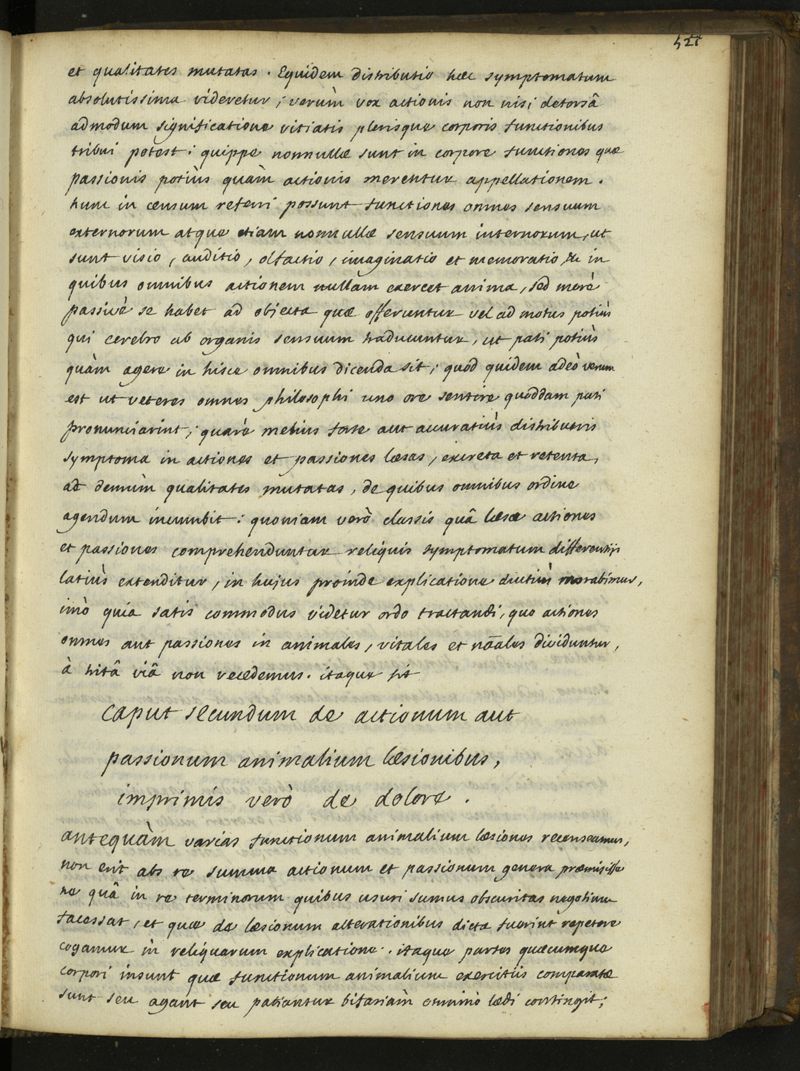 521
et qualitates mutatas. Equidem distributio hæc symptomatum
absolutissima videretur; verùm vox actionis non nisi detorsâ
admodum significatione vitiatis plerisque corporis functionibus
tribui potest: quippe nonnullæ sunt in corpore functiones quæ
passionis potiùs quàm actionis merentur appellationem.
hunc in censum referri possunt functiones omnes sensuum
externorum atque etiam nonnullæ sensuum internorum, ut
sunt visio, auditio, olfactio, imaginatio et memoratio, &c in
quibus omnibus actionem nullam exercet anima, sed merè
passivè se habet ad objecta quæ offeruntur vel ad motus potiùs
qui cerebro ab organis sensuum traducuntur, ut pati potiùs
quàm agere in hisce omnibus dicenda sit; quod quidem adeò verum
est ut veteres omnes philosophi uno ore sentire quoddam pati
pronunciarint; quarè melius forte aut accuratiùs distribueris
symptoma in actiones et passiones læsas, excreta et retenta,
ac demùm qualitates mutatas, de quibus omnibus ordine
agendum incumbit: quoniam verò classis quâ læsæ actiones
et passiones comprehenduntur reliquis symptomatum differentijs
latiùs extenditur, in hujus proinde explicatione diutiùs morabimur,
imò quia satis commodus videtur ordo tractandi, quo actiones
omnes aut passiones in animales, vitales et nāales dividuntur,
à tritâ viâ non recedemus. itaque sit
caput secundum de actionum aut
passionum animalium læsionibus,
imprimis verò de dolore.
antequàm varias functionum animalium læsiones recenseamus,
non erit abs re summa actionum et passionum genera præmisisse
ne quâ in re terminorum quibus usuri sumus obscuritas negotium
facessat, et quæ de læsionum alterationibus dicta fuerint repetere
cogamur in reliquarum explicatione. itaque partes quæcumque
corpori insunt quæ functionum animalium exercitiis comparatæ
sunt seu agant seu patiantur bifariàm omninò lædi contingit;